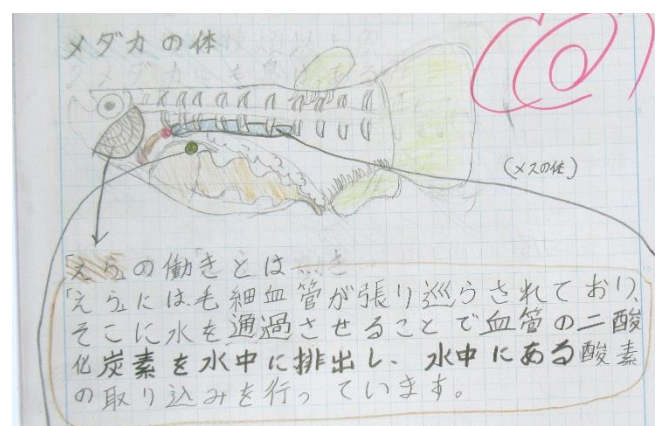 メダカの体
(メスの体)
「えら」の働きとは
「えら」には毛細血管が張り巡らされており、
そこに水を通過させることで血管の二酸
化炭素を水中に排出し、水中にある酸素
の取り込みを行っています。